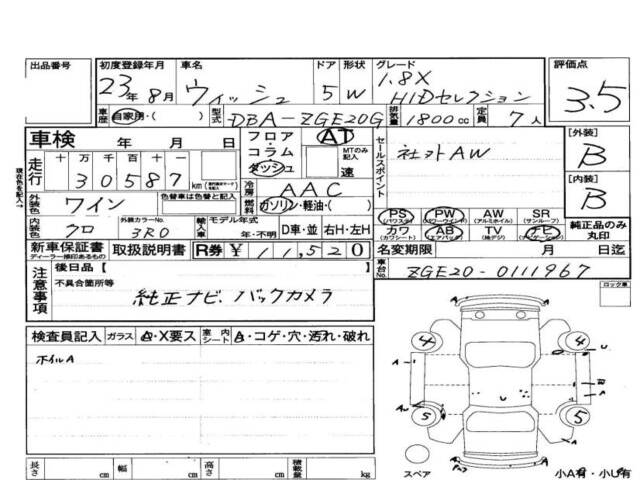 出品番号
初度登録年月 車名 ドア 形状 グレード 評価点
23年8月 ウィッシュ 5 W 1.8X
HIDセレクション 3.5
車歴 自家用・( ) 型式 DBA-ZGE20G 排気量 1800cc 定員 7人
車検 年 月 日
フロア・コラム ダッシュ AT MTのみ記入 速
セールスポイント 社外AW
[外装] B
現在色を記入→
走行 十 万 千 百 十 一
30587 km
冷房 AAC
[内装] B
外装色 ワイン 色替車は色替と記入
燃料 ガソリン・軽油・( )
PS (パワステ) PW (パワーウインド) AW (アルミホイル) SR (サンルーフ)
内装色 クロ 外装カラーNo. 3R0 輸入車 モデル年式 年・不明 D車・並 右H・左H
カワ (カワシート) AB (エアバック) TV (純正デジ) ナビ (ナビゲーション) 純正品のみ丸印
新車保証書 ディーラー捺印あるもの 取扱説明書 R券 ¥ 11,520
名変期限 月 日迄
注意事項 後日品【 】
車台No. ZGE20-0111967
不具合箇所等
純正ナビ、バックカメラ
ロック車
検査員記入 ガラス A・X要ス 室内シート A・コゲ・穴・汚れ・破れ
ホイルA
4 4
A U
A B
A A
5 5
スペア
小A有・小U有
長さ cm 幅 cm 高さ cm 積載量 kg